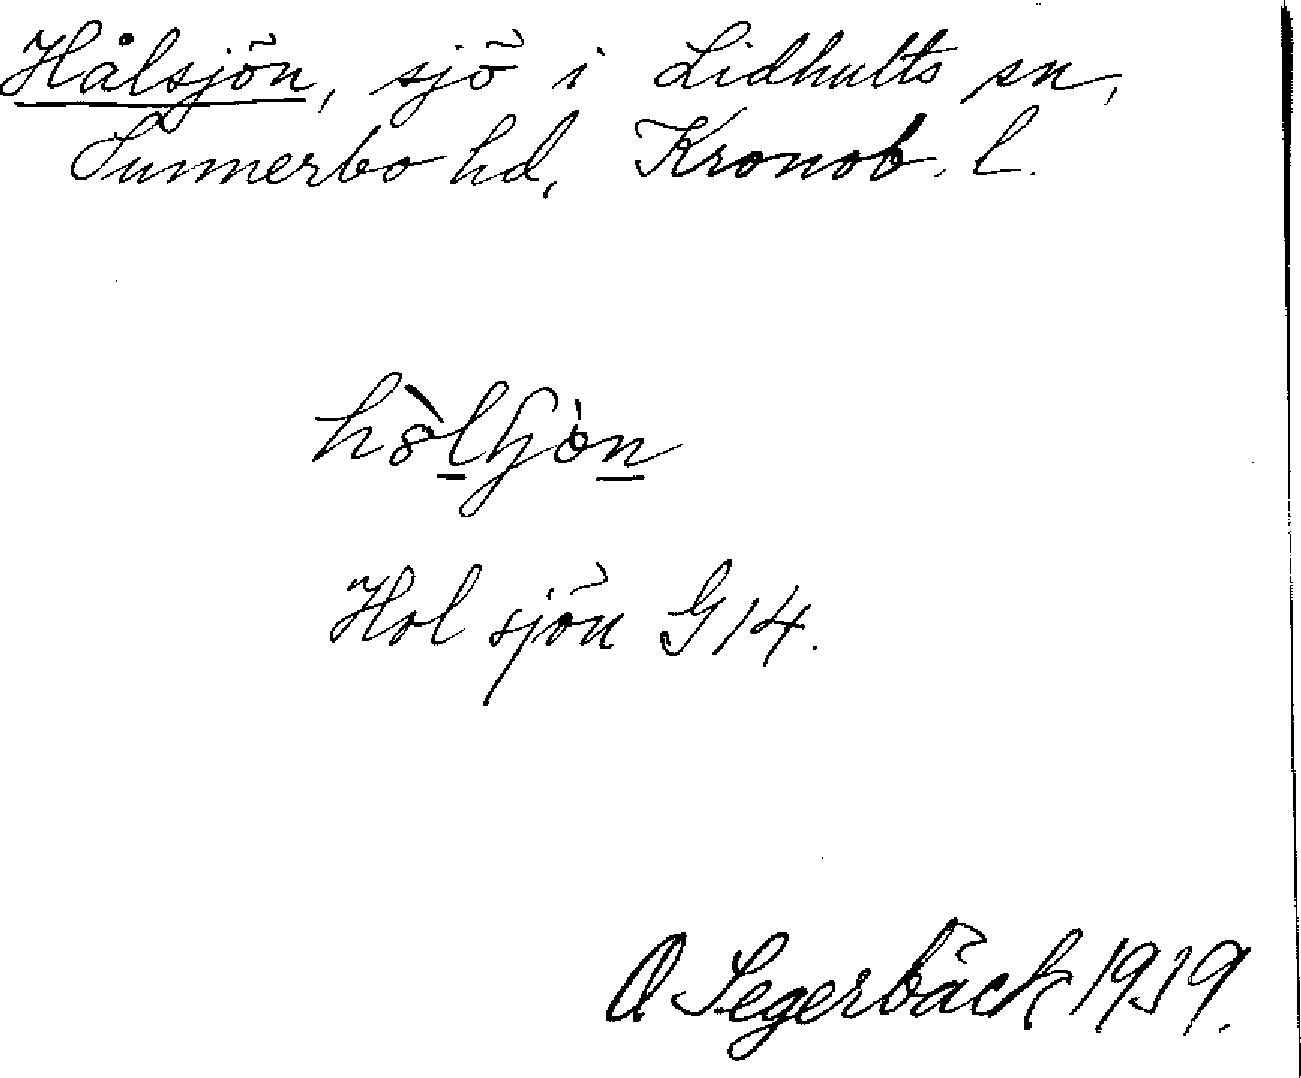 Hålsjön, sjö i Lidhults sn,
Sunnerbo hd, Kronob. l.
Hol sjön G14.
O Segerbäck 1939.